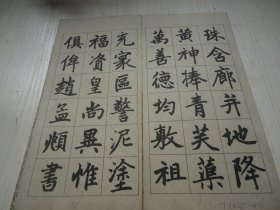 珠含廊并地降
黄神捧青芙蕖
萬善德均敷祖
充寰區警泥塗
福資皇尚異惟
俱俾趙孟頫書